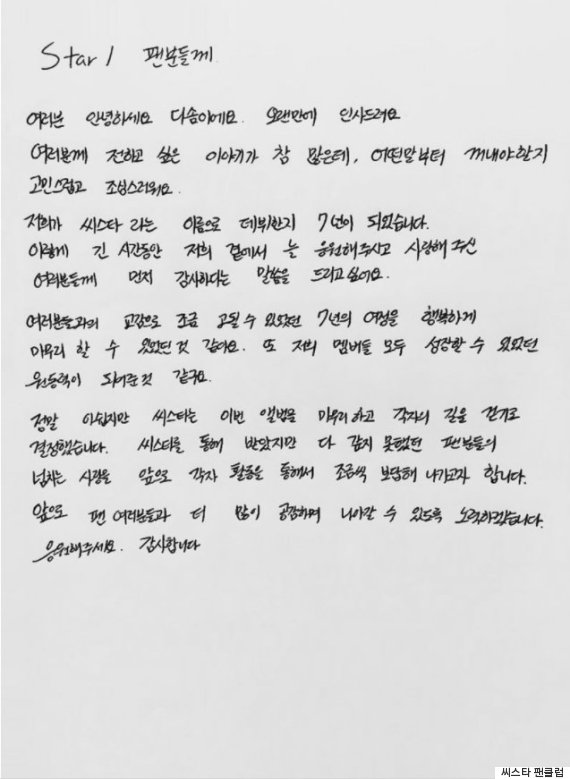 Star1 팬분들께
여러분 안녕하세요 다솜이에요. 오랜만에 인사드려요
여러분께 전하고 싶은 이야기가 참 많은데, 어떤말부터 꺼내야할지
고민스럽고 조심스러워요.
저희가 씨스타 라는 이름으로 데뷔한지 7년이 되었습니다.
이렇게 긴 시간동안 저희 곁에서 늘 응원해주시고 사랑해 주신
여러분들께 먼저 감사하다는 말씀을 드리고 싶어요.
여러분들과의 교감으로 조금 긴 수 있었던 7년의 여정을 행복하게
마무리 할 수 있었던것 같아요. 또 저희 멤버들 모두 성장할 수 있었던
원동력이 되어준것 같구요.
정말 아쉽지만 씨스타는 이번 앨범을 마무리하고 각자의 길을 걷기로
결정했습니다. 씨스타를 통해 받았지만 다 갚지 못했던 팬분들의
넘치는 사랑을 앞으로 각자 활동을 통해서 조금씩 보답해 나가고자 합니다.
앞으로 팬 여러분들과 더 많이 공감하며 나아갈 수 있도록 노력하겠습니다.
응원해주세요. 감사합니다
씨스타 팬클럽